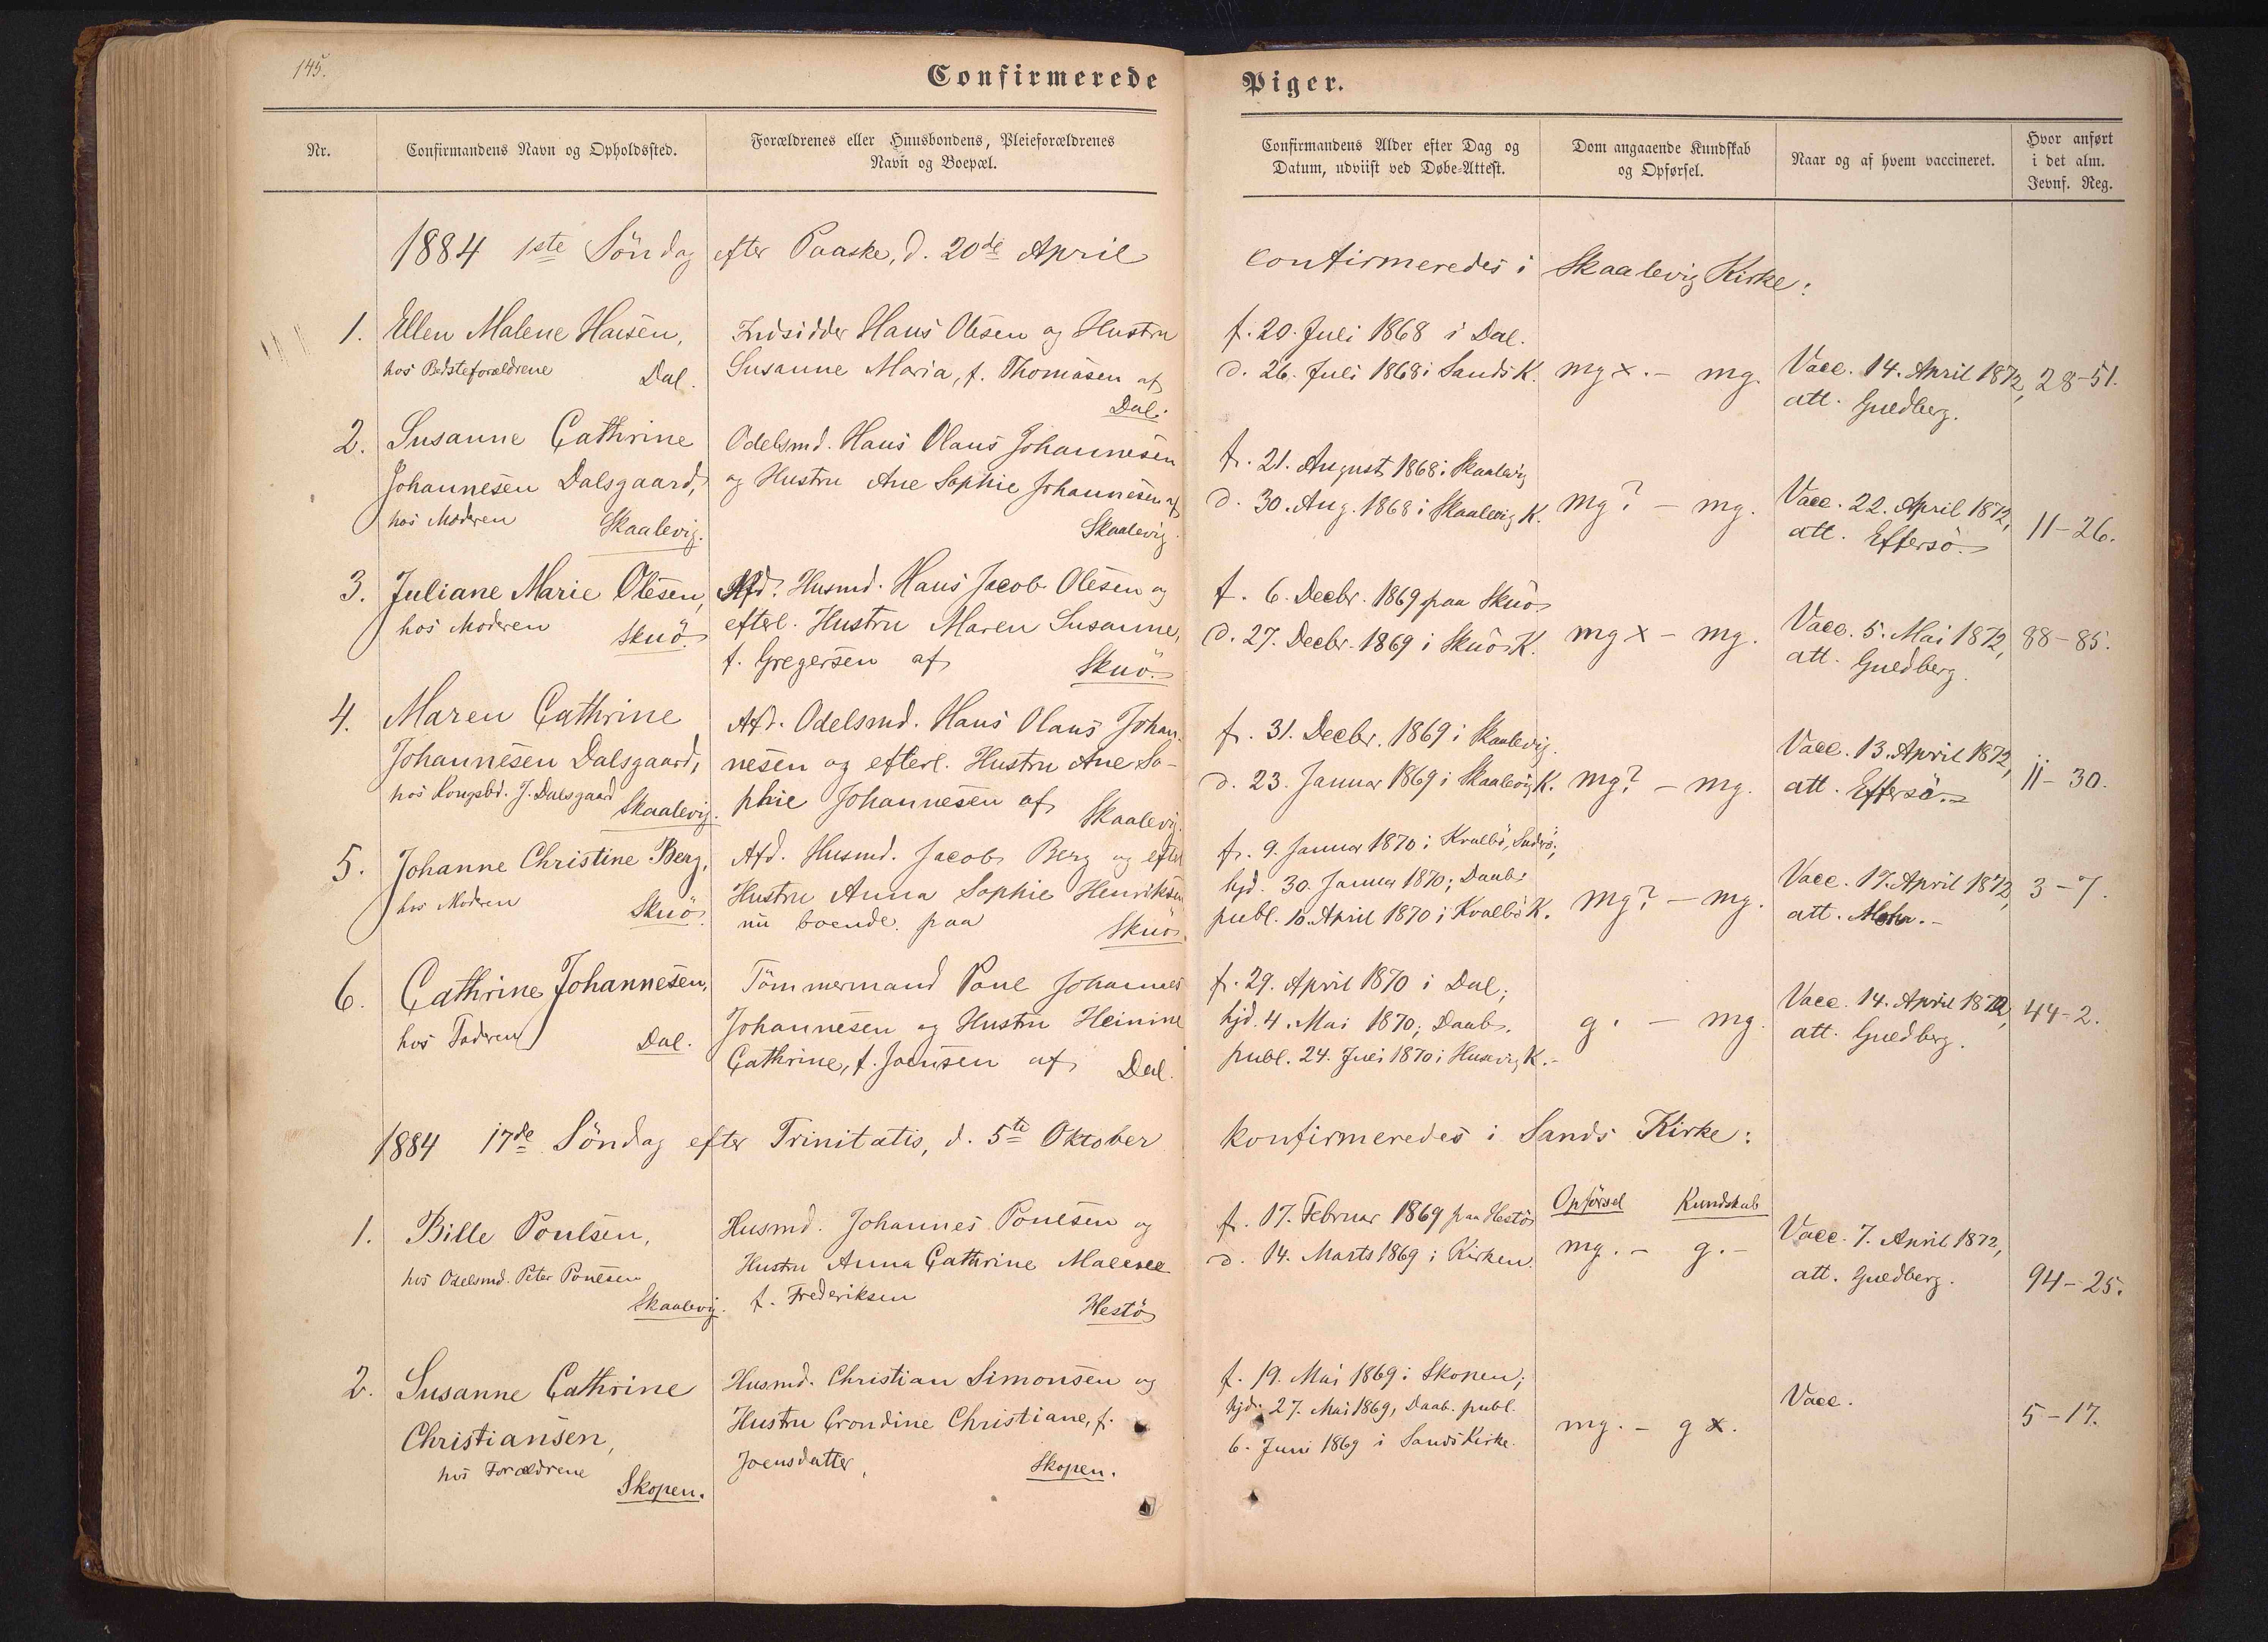 145.
Confirmerede Piger.
Nr.
Confirmandens Navn og Opholdssted.
Forældrenes eller Huusbondens, Pleieforældrenes
Navn og Boepæl.
Confirmandens Alder efter Dag og
Datum, udviist ved Døbe-Attest.
Dom angaaende Kundskab
og Opførsel.
Naar og af hvem vaccineret.
Hvor anført
i det alm.
Jevnf. Reg.
1884 1ste Söndag efter Paaske, d. 20de April confirmeredes i Skaalevig Kirke:
1.
Ellen Malene Hansen,
hos Bedsteforældrene
Dal.
Indsidder Hans Olesen og Hustru
Susanne Maria, f. Thomasen af
Dal.
f. 20. Juli 1868 i Dal.
d. 26. Juli 1868 i Sands K.
mg x. – mg.
Vacc. 14. April 1872,
att. Guldberg.
28–51.
2.
Susanne Cathrine
Johannesen Dalsgaard,
hos Moderen
Skaalevig.
Odelsmd. Hans Olaus Johannesen
og Hustru Ane Sophie Johannesen af
Skaalevig.
f. 21. August 1868 i Skaalevig
d. 30. Aug. 1868 i Skaalevig K.
mg? – mg.
Vacc. 22. April 1872,
att. Effersö.
11–26.
3.
Juliane Marie Olesen,
hos Moderen
Skuö.
Afd. Husmd. Hans Jacob Olesen og
efterl. Hustru Maren Susanne,
f. Gregersen af
Skuö.
f. 6. Decbr. 1869 paa Skuö
d. 27. Decbr. 1869 i Skuö K.
mg x – mg.
Vacc. 5. Mai 1872,
att. Guldberg.
88–85.
4.
Maren Cathrine
Johannesen Dalsgaard,
hos Kongsbd. J. Dalsgaard
Skaalevig.
Afd. Odelsmd. Hans Olaus Johan-
nesen og efterl. Hustru Ane So-
phie Johannesen af
Skaalevig.
f. 31. Decbr. 1869 i Skaalevig.
d. 23. Januar 1869 i Skaalevig K.
mg? – mg.
Vacc. 13. April 1872,
att. Effersö.
11–30.
5.
Johanne Christine Berg,
hos Moderen
Skuö.
Afd. Husmd. Jacob Berg og efterl
Hustru Anna Sophie Henriksen
nu boende paa
Skuö.
f. 9. Januar 1870 i Kvalbö, Suderö;
hjd. 30. Januar 1870; Daab
publ. 10. April 1870 i Kvalbö K.
mg? – mg.
Vacc. 17. April 1872,
att.
3–7.
6.
Cathrine Johannesen,
hos Faderen
Dal.
Tömmermand Poul Johannes
Johannesen og Hustru Heinine
Cathrine, f. Joensen af
Dal.
f. 29. April 1870 i Dal;
hjd. 4. Mai 1870; Daab.
publ. 24. Juli 1870 i Husevig K.
g. – mg.
Vacc. 14. April 1872,
att. Guldberg.
44–2.
1884 17de Söndag efter Trinitatis, d. 5te Oktober konfirmeredes i Sands Kirke:
Opførsel Kundskab
1.
Bille Poulsen,
hos Odelsmd. Peter Poulsen
Skaalevig.
Husmd. Johannes Poulsen og
Hustru Anna Cathrine Malene
f. Frederiksen
Hestö
f. 17. Februar 1869 paa Hestö
d. 14. Marts 1869 i Kirken.
mg. – g. –
Vacc. 7. April 1872,
att. Guldberg.
94–25.
2.
Susanne Cathrine
Christiansen,
hos Forældrene
Skopen.
Husmd. Christian Simonsen og
Hustru Grondine Christiane, f.
Joensdatter,
Skopen.
f. 19. Mai 1869 i Skopen;
hjd. 27. Mai 1869, Daab. publ.
6. Juni 1869 i Sands Kirke.
mg. – g x.
Vacc.
5–17.